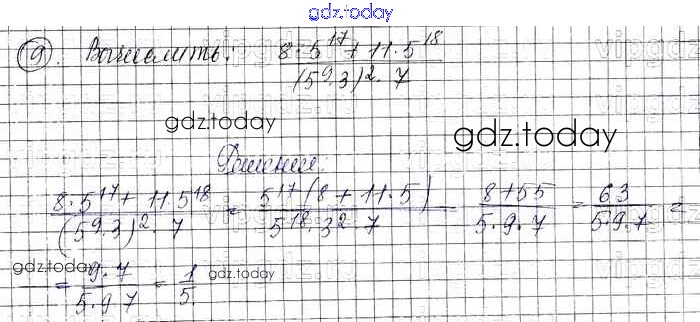 gdz.today
9. Вычислить: (8·5^17 + 11·5^18) / ((5^9·3)^2·7)
gdz.today
gdz.today
Решение:
(8·5^17 + 11·5^18) / ((5^9·3)^2·7) = 5^17(8 + 11·5) / (5^18·3^2·7) = (8+55) / (5·9·7) = 63 / (5·9·7) =
gdz.today
= (9·7) / (5·9·7) = 1/5
gdz.today